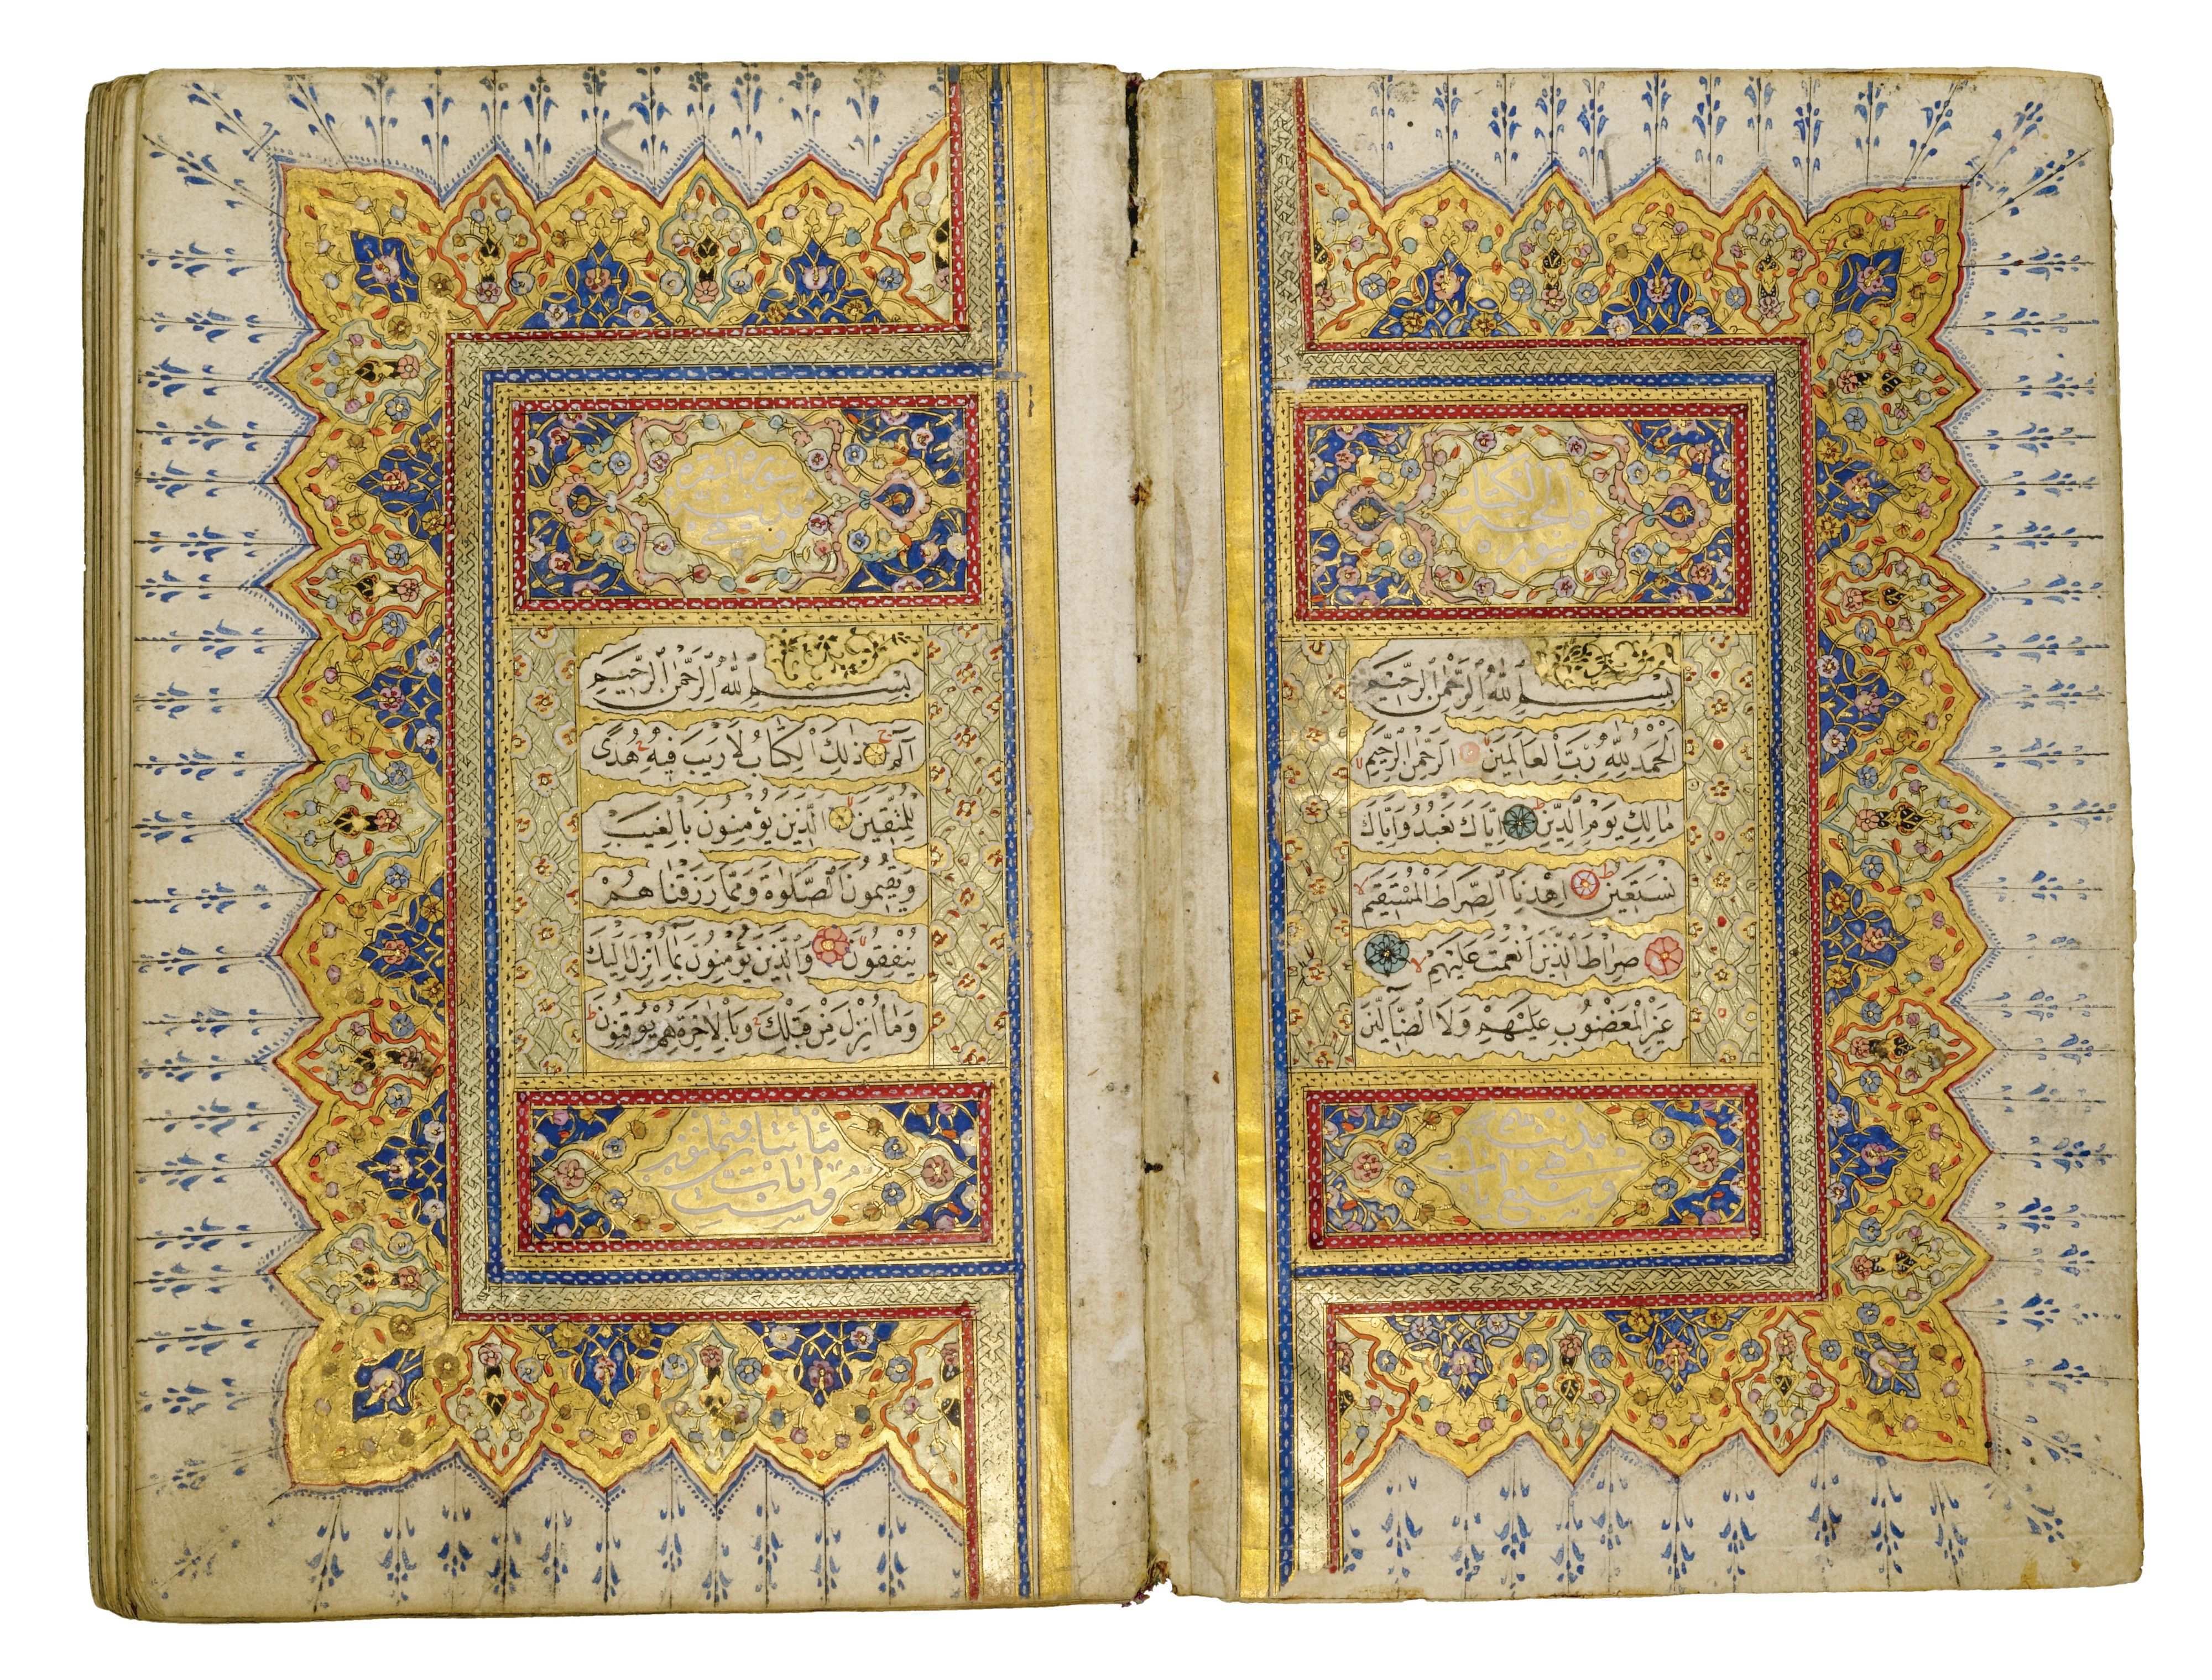 سورة
فاتحة
الكتاب
بِسْمِ ٱللهِ ٱلرَّحْمٰنِ ٱلرَّحِيمِ
اَلْحَمْدُ لِلّٰهِ رَبِّ الْعَالَمِينَ ۙ الرَّحْمٰنِ الرَّحِيمِ ۙ
مَالِكِ يَوْمِ الدِّينِ ۜ اِيَّاكَ نَعْبُدُ وَاِيَّاكَ
نَسْتَعِينُ ۜ اِهْدِنَا الصِّرَاطَ الْمُسْتَقِيمَ ۙ
صِرَاطَ الَّذِينَ اَنْعَمْتَ عَلَيْهِمْ ۙ
غَيْرِ الْمَغْضُوبِ عَلَيْهِمْ وَلَا الضَّٓالِّينَ
وسبع ايات
سورة البقرة
مدنية
وهي
بِسْمِ ٱللهِ ٱلرَّحْمٰنِ ٱلرَّحِيمِ
الٓمٓ ۚ ذٰلِكَ الْكِتَابُ لَا رَيْبَ فِيهِ ۚ هُدًى
لِلْمُتَّقِينَ ۙ الَّذِينَ يُؤْمِنُونَ بِالْغَيْبِ
وَيُقِيمُونَ الصَّلٰوةَ وَمِمَّا رَزَقْنَاهُمْ
يُنْفِقُونَ ۙ وَالَّذِينَ يُؤْمِنُونَ بِمَٓا اُنْزِلَ اِلَيْكَ
وَمَٓا اُنْزِلَ مِنْ قَبْلِكَ ۚ وَبِالْاٰخِرَةِ هُمْ يُوقِنُونَ ۜ
مائتان وثمانون
وست ايات